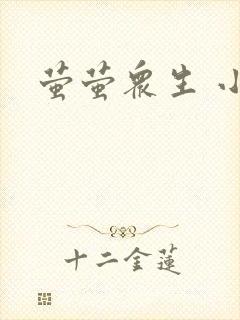 萤萤众生 小
十二金莲